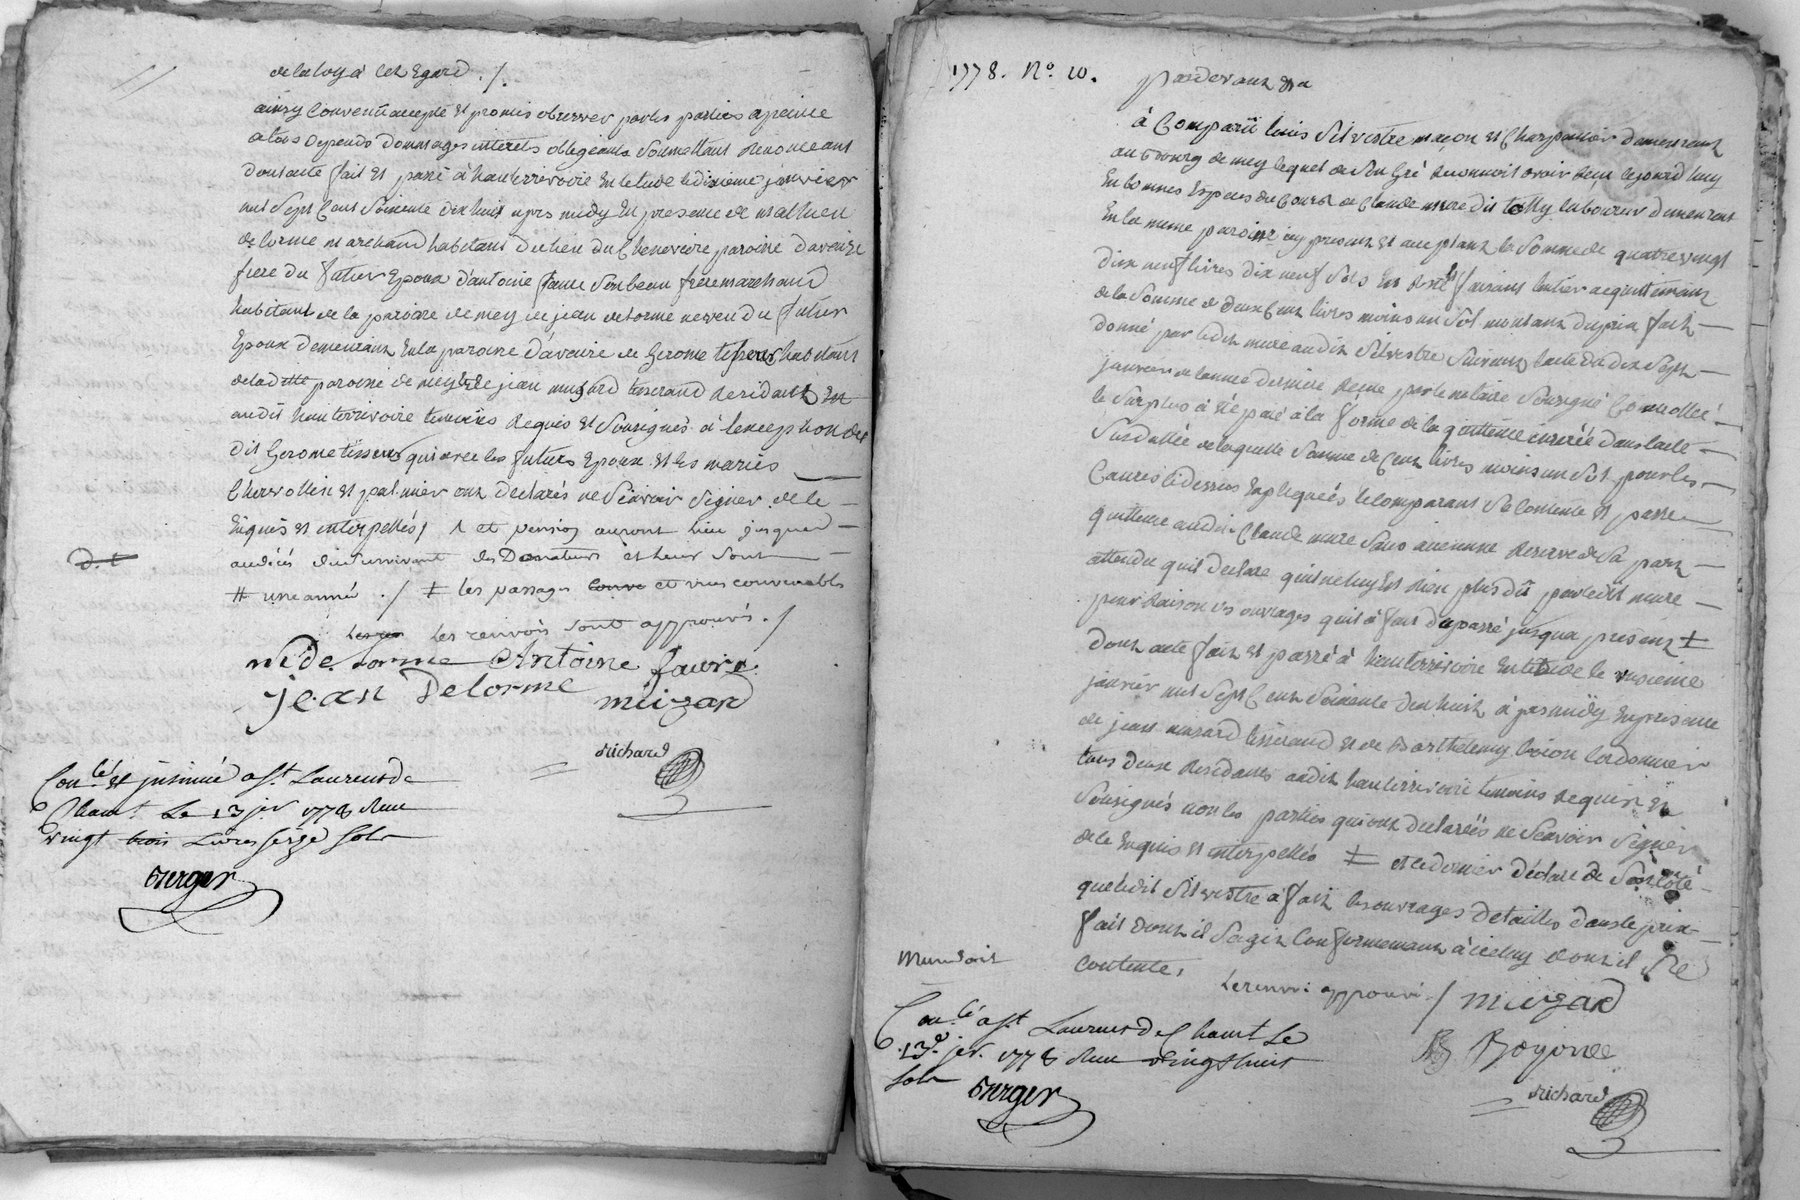 de la loy a cet Egard ./.
ainsy Convenu accepté et promis observer par les parties a peine
a tous depends dommages interets obligeants soumettant Renonceant
dont acte fait et passé à hauterrivoire En letude le dixieme janvier
mil Sept Cent Soixente dix huit apres midy En presence de mathieu
delorme marchand habitant du lieu du Chenevoire paroisse d'avaize
frere du futur Epoux d'antoine faure Son beau frere marchand
habitant de la paroisse de meys de jean delorme neveu du futur
Epoux demeurant En la paroisse d'avaize de Gerome tisseur habitant
de lad ditte paroisse de meys et de jean muzard tisserand Residant En
audit hauterrivoire temoins Requis et Sousignés à lexception du
dit Gerome tisseur qui avec les futurs Epoux et les mariés
Cherrollin et palmier ont declarés ne Scavoir Signer de le
Enquis et interpellés / et pension auront lieu jusques
audécés du Survivant des Donateurs et leur Sont
# une année ./ ‡ les passages et vues couvenables
les renvois sont approuvés. /
M De lorme Antoine faure
jean Delorme muzard
richard
Con.lé et insinué a St. Laurent de
Cham.t Le 13 j.er 1778 Recu
vingt trois Livres seize sols
Berger
1778. N.o 10.
pardevant &a
à Comparü louis Silvestre maçon et Charpantier demeurant
au Bourg de mey lequel de Son Gré Reconnoit avoir Reçu Cejourd'huy
En bonnes Especes du Cours de Claude mure dit tolly laboureur demeurant
En la meme paroisse icy present et acceptant la Somme de quatrevingt
dix neuf livres dix neuf Sols En Reste et faisant lentier acquittement
de la Somme de deux Cent livres moins un Sol montant du prix fait
donné par ledit mure audit Silvestre Suivant lacte du dix Sept
janvier de lannée derniere Recue par le notaire Sousigné Conrollé
le Surplus à été paié à la forme de la quittence inserée dans lacte
Susdatté de laquelle Somme de Cent livres moins un Sol pour les
Causes cidessus Expliquées le Comparant Se Contente et passe
quittence audit Claude mure Sans aucunne Reserve de Sa part
attendu quil declare quil ne luy Est Rien plus dü par ledit mure
pour Raison des ouvrages quil à fait du passé jusqua present ‡
dont acte fait et passé à hauterrivoire En letude le onzieme
janvier mil Sept Cent Soixente dix huit a pres midy En presence
de jean muzard tisserand et de Barthelemy bojon Cordonnier
tous deux Residants audit hauterrivoire temoins Requis et
Sousignés non les parties qui ont declarées ne Scavoir Signer
de le Enquis et interpellés ‡ et ce dernier declare de Son coté
que ledit Silvestre à fait les ouvrages detaillés dans le prix
fait dont il Sagit Conformement à iceluy dont il Se
Contente,
Le renvoi approuvé / muzard
B Boyonde
richard
Con.lé a St. Laurent de Chamt Le
13.e jer. 1778 Recu vingt huit
sols Berger